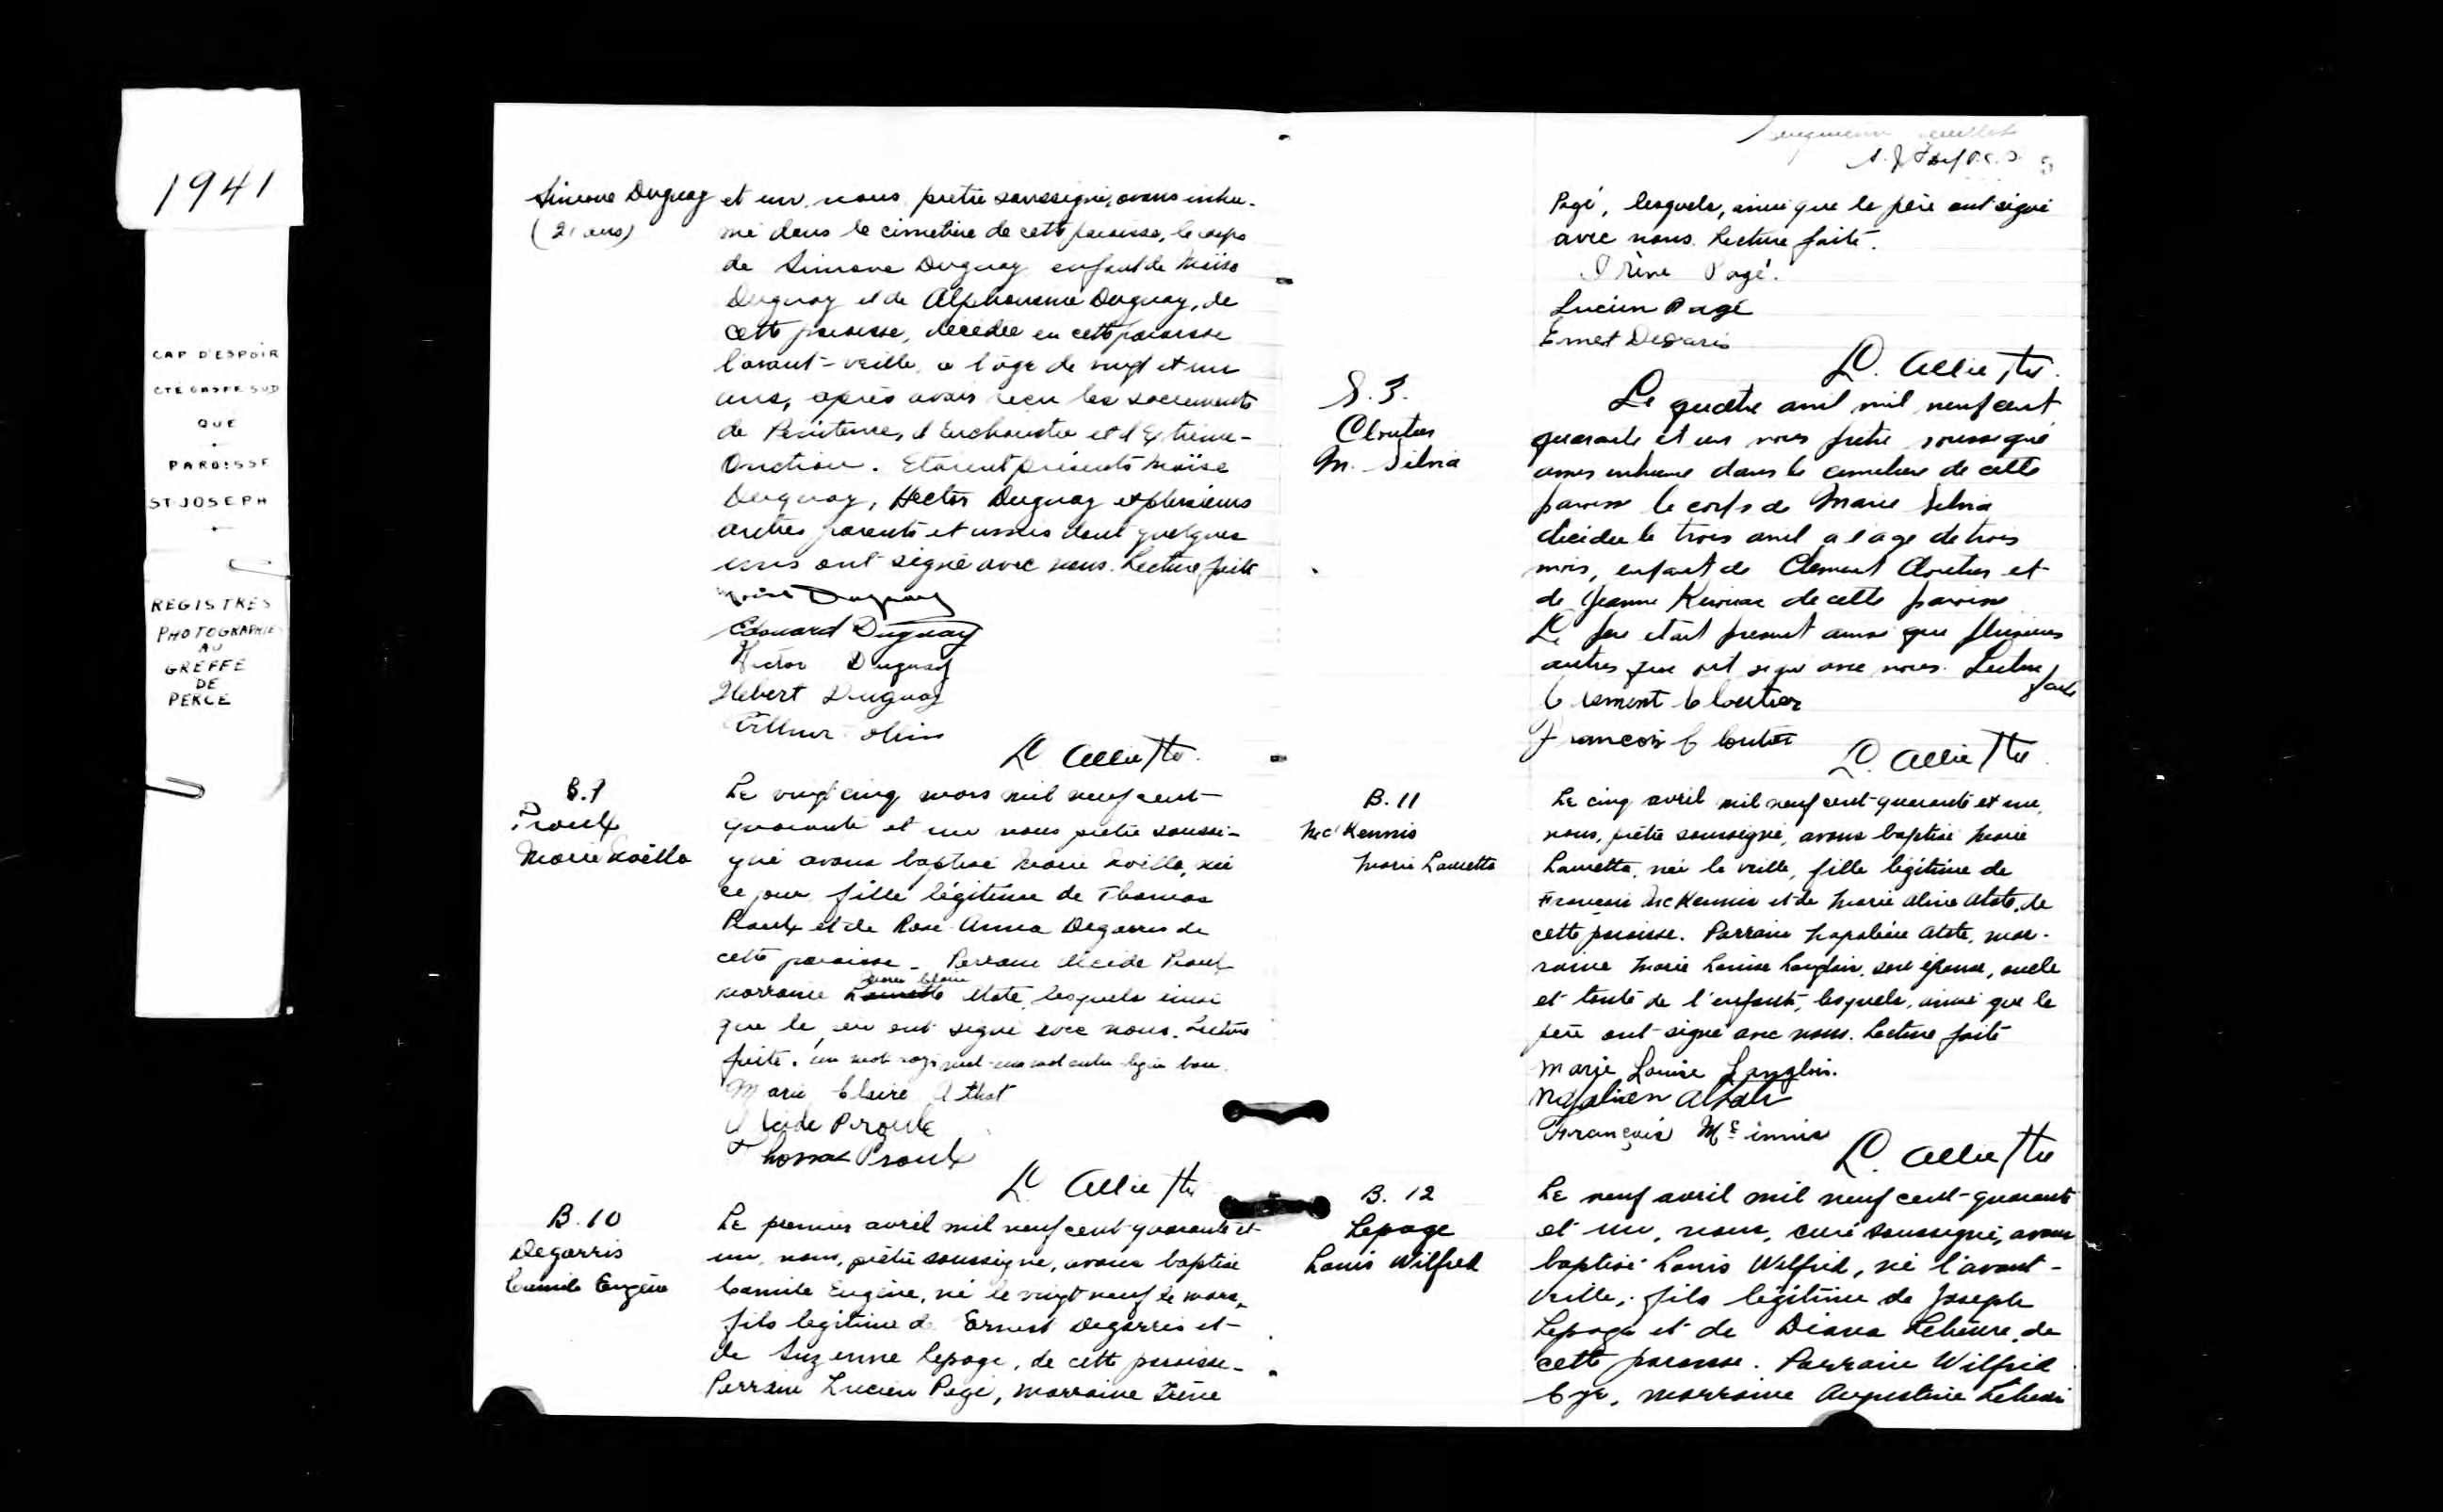 1941
CAP D'ESPOIR
CTE GASPE SUD
QUE
PAROISSE
ST-JOSEPH
REGISTRES
PHOTOGRAPHIE
AU
GREFFE
DE
PERCE
Simone Duguay
(21 ans)
et un, nous, prêtre soussigné, avons inhu-
mé dans le cimetière de cette paroisse, le corps
de Simone Duguay enfant de Moïse
Duguay et de Alphonsine Duguay, de
cette paroisse, décédée en cette paroisse
l'avant-veille, a l'âge de vingt et un
ans, après avoir reçu les sacrements
de Penitence, d'Eucharistie et d'Extrême-
Onction. Etaient présents Moïse
Duguay, Hector Duguay et plusieurs
autres parents et amis dont quelques
uns ont signé avec nous. Lecture faite
Moise Duguay
Edouard Duguay
Hector Duguay
Hebert Duguay
L.
B.9
Proulx
Marie Noëlla
Le vingt cinq mars mil neuf cent
quarante et un nous prêtre soussi-
gné avons baptisé Marie Noëlla, née
ce jour fille légitime de Thomas
Proulx et de Rose Anna Degarris de
cette paroisse - Parrain Alcide Proulx
Marie Claire
marraine Lauretta Atote, lesquels ainsi
que le père ont signé avec nous. Lecture
faite. un mot rayé nul-un mot entre-ligne bon.
Marie Claire Athot
Alcide Proulx
Thomas Proulx
L.
B.10
Degarris
Camile Eugène
Le premier avril mil neuf cent quarante et
un, nous, prêtre soussigné, avons baptisé
Camile Eugène, né le vingt neuf de mars,
fils légitime de Ernest Degarris et
de Suzanne Lepage, de cette paroisse-
Parrain Lucien Pagé, marraine Irène
feuillet
Pagé, lesquels, ainsi que le père ont signé
avec nous. Lecture faite.
Irène Pagé.
Lucien Pagé
Ernest Degaris
L.
S.3.
Cloutier
M. Silvia
Le quatre avril mil neuf cent
quarante et un nous prêtre soussigné
avons inhumé dans le cimetière de cette
paroisse le corps de Marie Silvia
décédée le trois avril a l'age de trois
mois, enfant de Clement Cloutier et
de Jeanne Kirouac de cette paroisse
Le père etait present ainsi que plusieurs
autres qui ont signé avec nous. Lecture
faite
Clement Cloutier
François Cloutier
L.
B.11
McKennis
Marie Lauretta
Le cinq avril mil neuf cent-quarante et un,
nous, prêtre soussigné, avons baptisé Marie
Lauretta, née la veille, fille légitime de
François McKennis et de Marie Aline Atote, de
cette paroisse. Parrain Napoléon Atote, mar-
raine Marie Louise Langlois, son épouse, oncle
et tante de l'enfant, lesquels, ainsi que le
père ont signé avec nous. Lecture faite
Marie Louise Langlois.
Napoléon
François Mc innis
L.
B. 12
Lepage
Louis Wilfred
Le neuf avril mil neuf cent-quarante
et un, nous, curé soussigné, avons
baptisé Louis Wilfrid, né l'avant-
veille, fils légitime de Joseph
Lepage et de Diana, de
cette paroisse. Parrain Wilfrid
Cyr, marraine Augustine